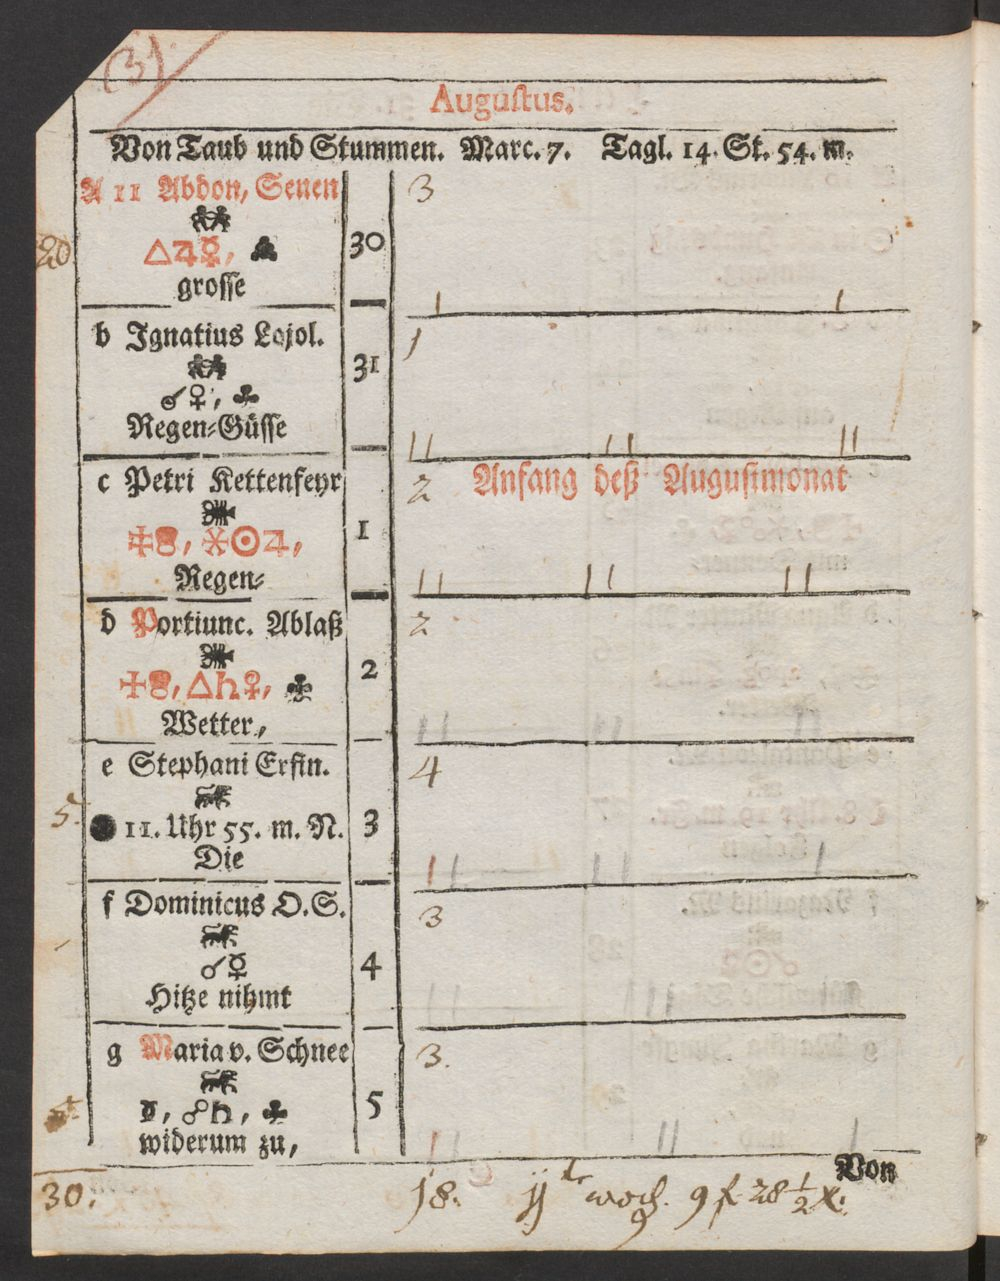 (3).
Augustus.
Von Taub und Stummen. Marc. 7. Tagl. 14. St. 54. m.
A 11 Abdon, Senen
30
3
20
△♃☿, ♣
grosse
b Ignatius Lojol.
31
1
☌♀, ♣
Regen-Güsse
c Petri Kettenfeyr
1
2 Anfang deß Augustmonat
☉♃,
Regen-
d Portiunc. Ablaß
2
2
△♄♀, ♣
Wetter,
e Stephani Erfin.
3
4
5.
● 11. Uhr 55. m. N.
Die
f Dominicus O.S.
4
3
☌☿
Hitze nihmt
g Maria v. Schnee
5
3.
☍♄, ♣
widerum zu,
Von
30. 18. woch. 9 f 28 1/2 x.